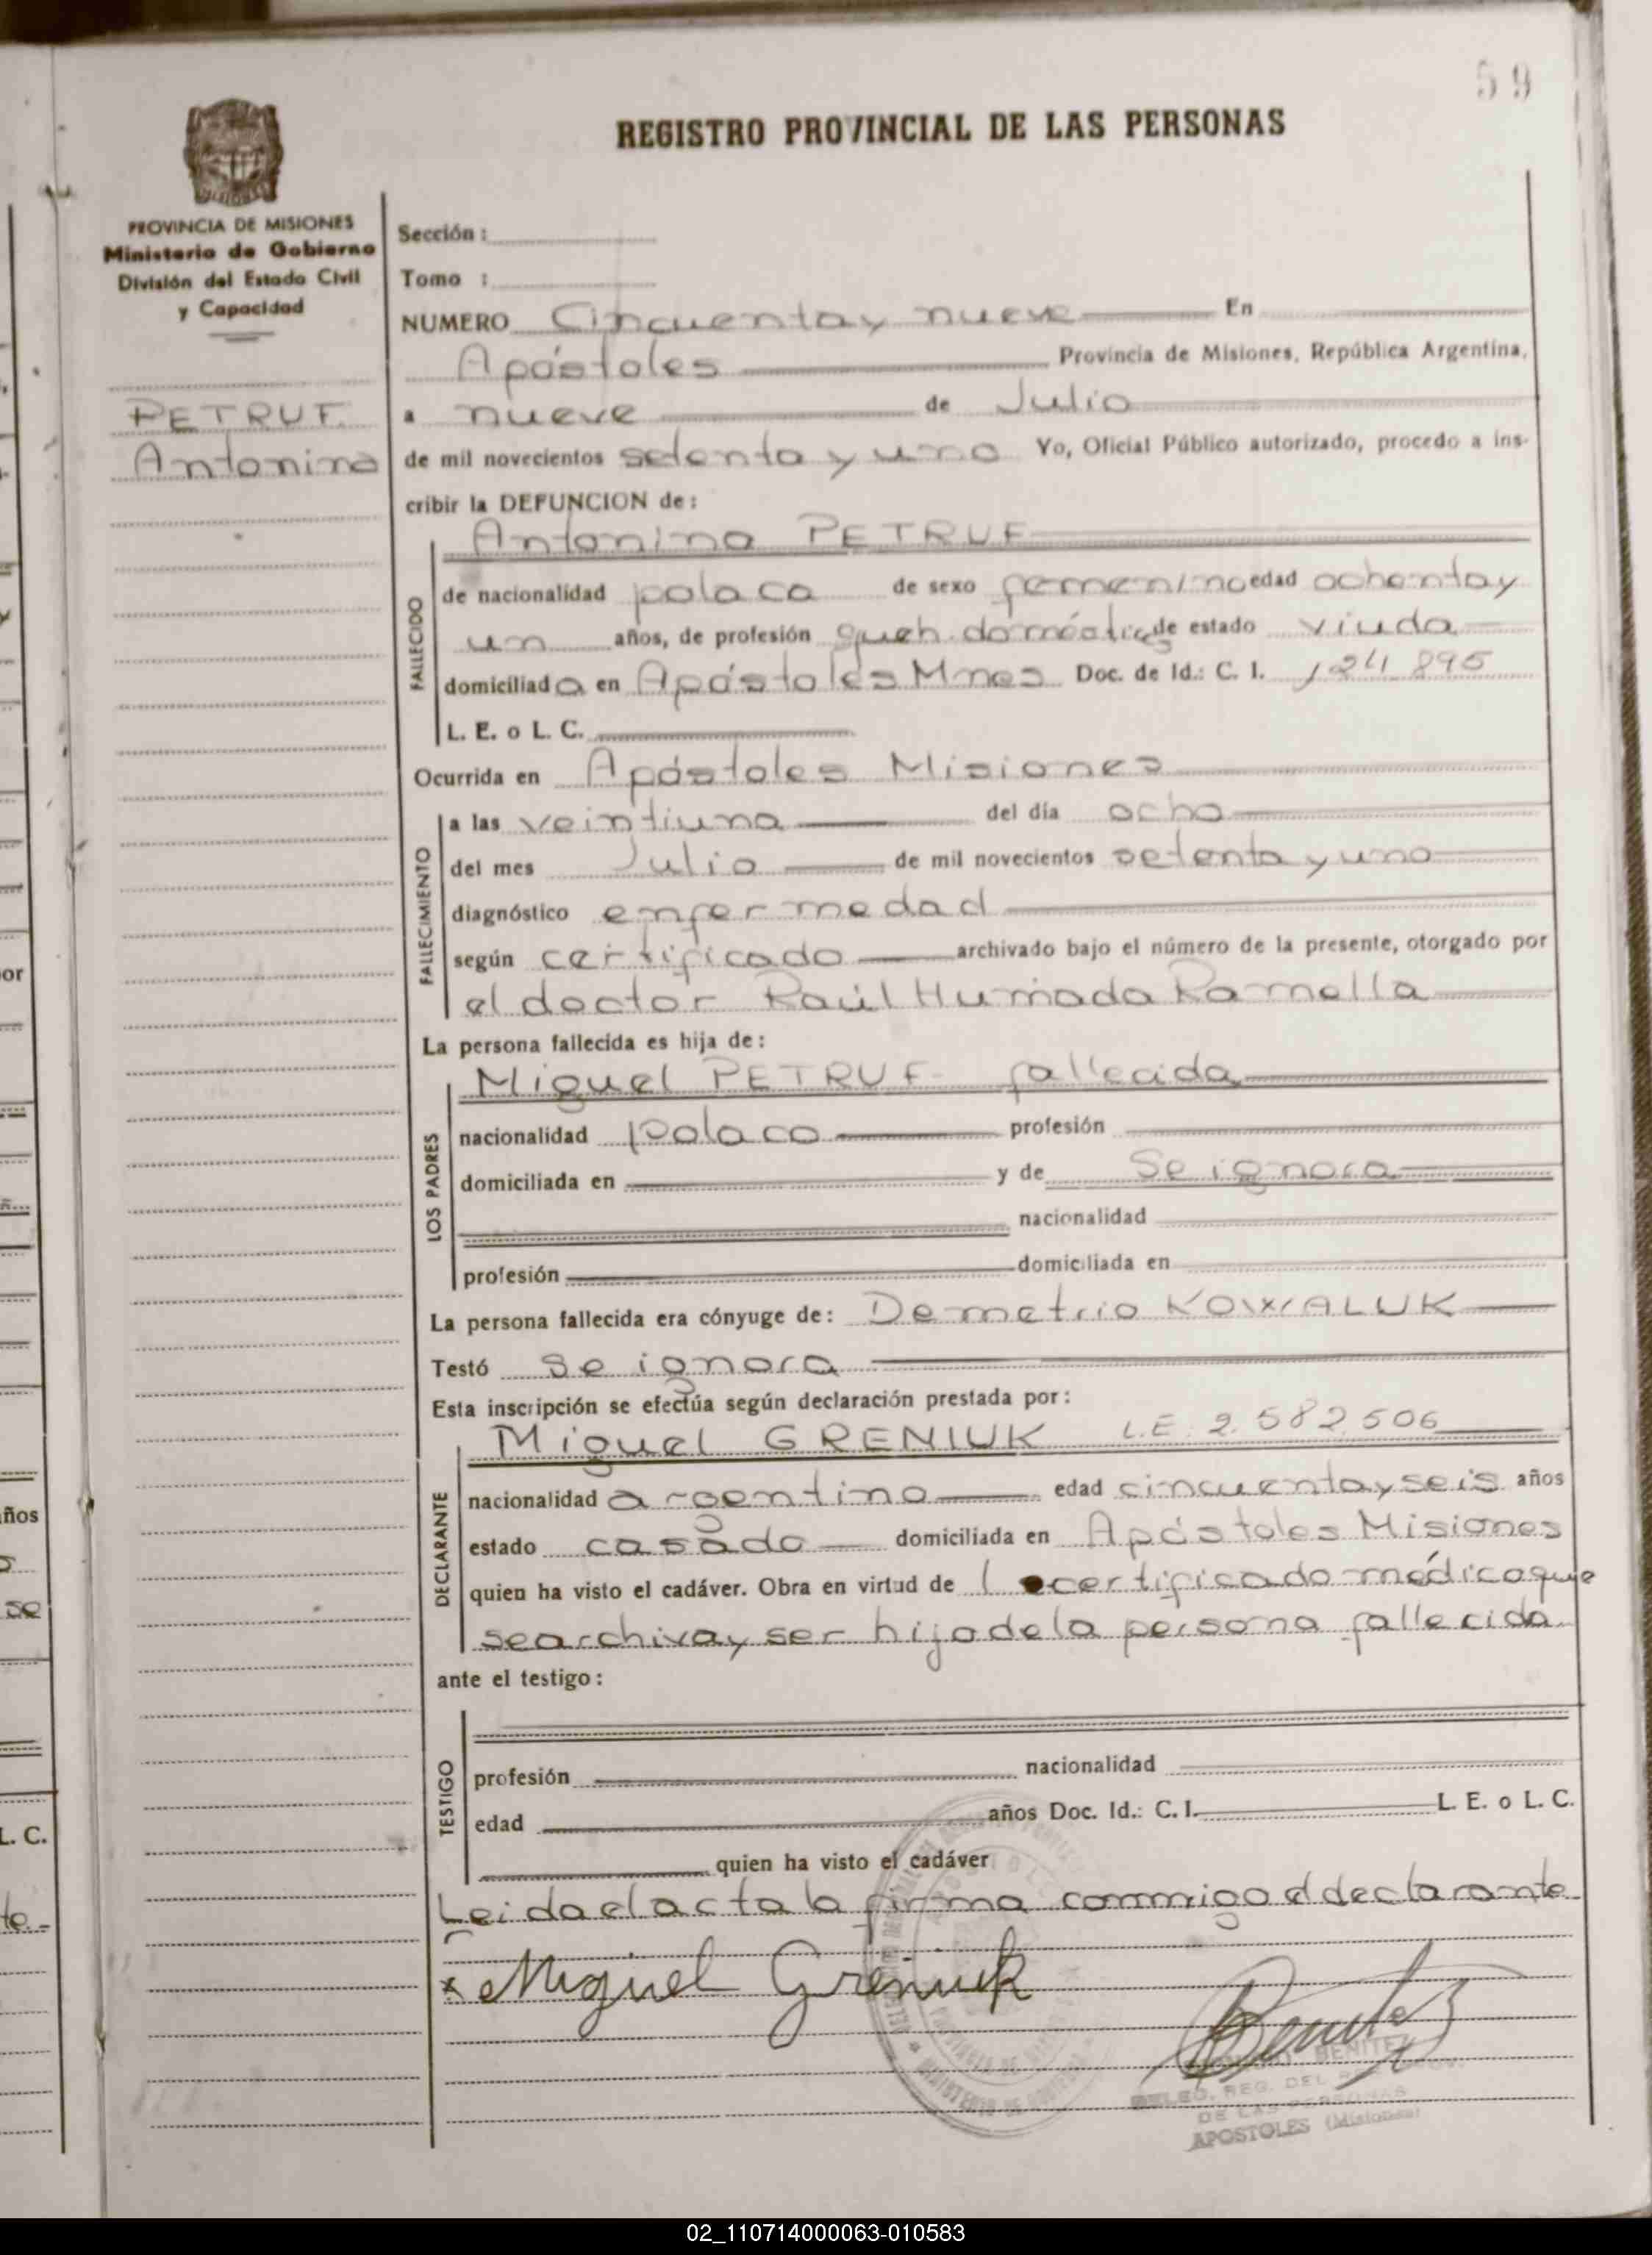 59
REGISTRO PROVINCIAL DE LAS PERSONAS
PROVINCIA DE MISIONES
Ministerio de Gobierno
División del Estado Civil
y Capacidad
PETRUF
Antonina
Sección:
Tomo :
NUMERO Cincuenta y nueve En
Apóstoles Provincia de Misiones, República Argentina,
a nueve de Julio
de mil novecientos setenta y uno Yo, Oficial Público autorizado, procedo a ins-
cribir la DEFUNCION de:
Antonina PETRUF
FALLECIDO
de nacionalidad polaca de sexo femenino edad ochenta y
un años, de profesión queh. domésticos de estado viuda
domiciliada en Apóstoles Mnes Doc. de Id.: C. I. 124.895
L. E. o L. C.
Ocurrida en Apóstoles Misiones
FALLECIMIENTO
a las veintiuna del día ocho
del mes Julio de mil novecientos setenta y uno
diagnóstico enfermedad
según certificado archivado bajo el número de la presente, otorgado por
el doctor Raúl Humada Ramella
La persona fallecida es hija de:
LOS PADRES
Miguel PETRUF- fallecida
nacionalidad polaco profesión
domiciliada en y de Se ignora
nacionalidad
profesión domiciliada en
La persona fallecida era cónyuge de: Demetrio KOWALUK
Testó se ignora
Esta inscripción se efectúa según declaración prestada por:
DECLARANTE
Miguel GRENIUK L.E. 2.582.506
nacionalidad argentino edad cincuenta y seis años
estado casado domiciliada en Apóstoles Misiones
quien ha visto el cadáver. Obra en virtud de l certificado médico que
se archiva y ser hijo de la persona fallecida
ante el testigo:
TESTIGO
profesión nacionalidad
edad años Doc. Id.: C. I. L. E. o L. C.
quien ha visto el cadáver
Leida el acta la firma conmigo el declarante
x Miguel Greniuk
Benitez
BENITEZ
DELEG. REG. DEL
DE LAS PERSONAS
APOSTOLES (Misiones)
or
ños
se
L. C.
te-
02_110714000063-010583